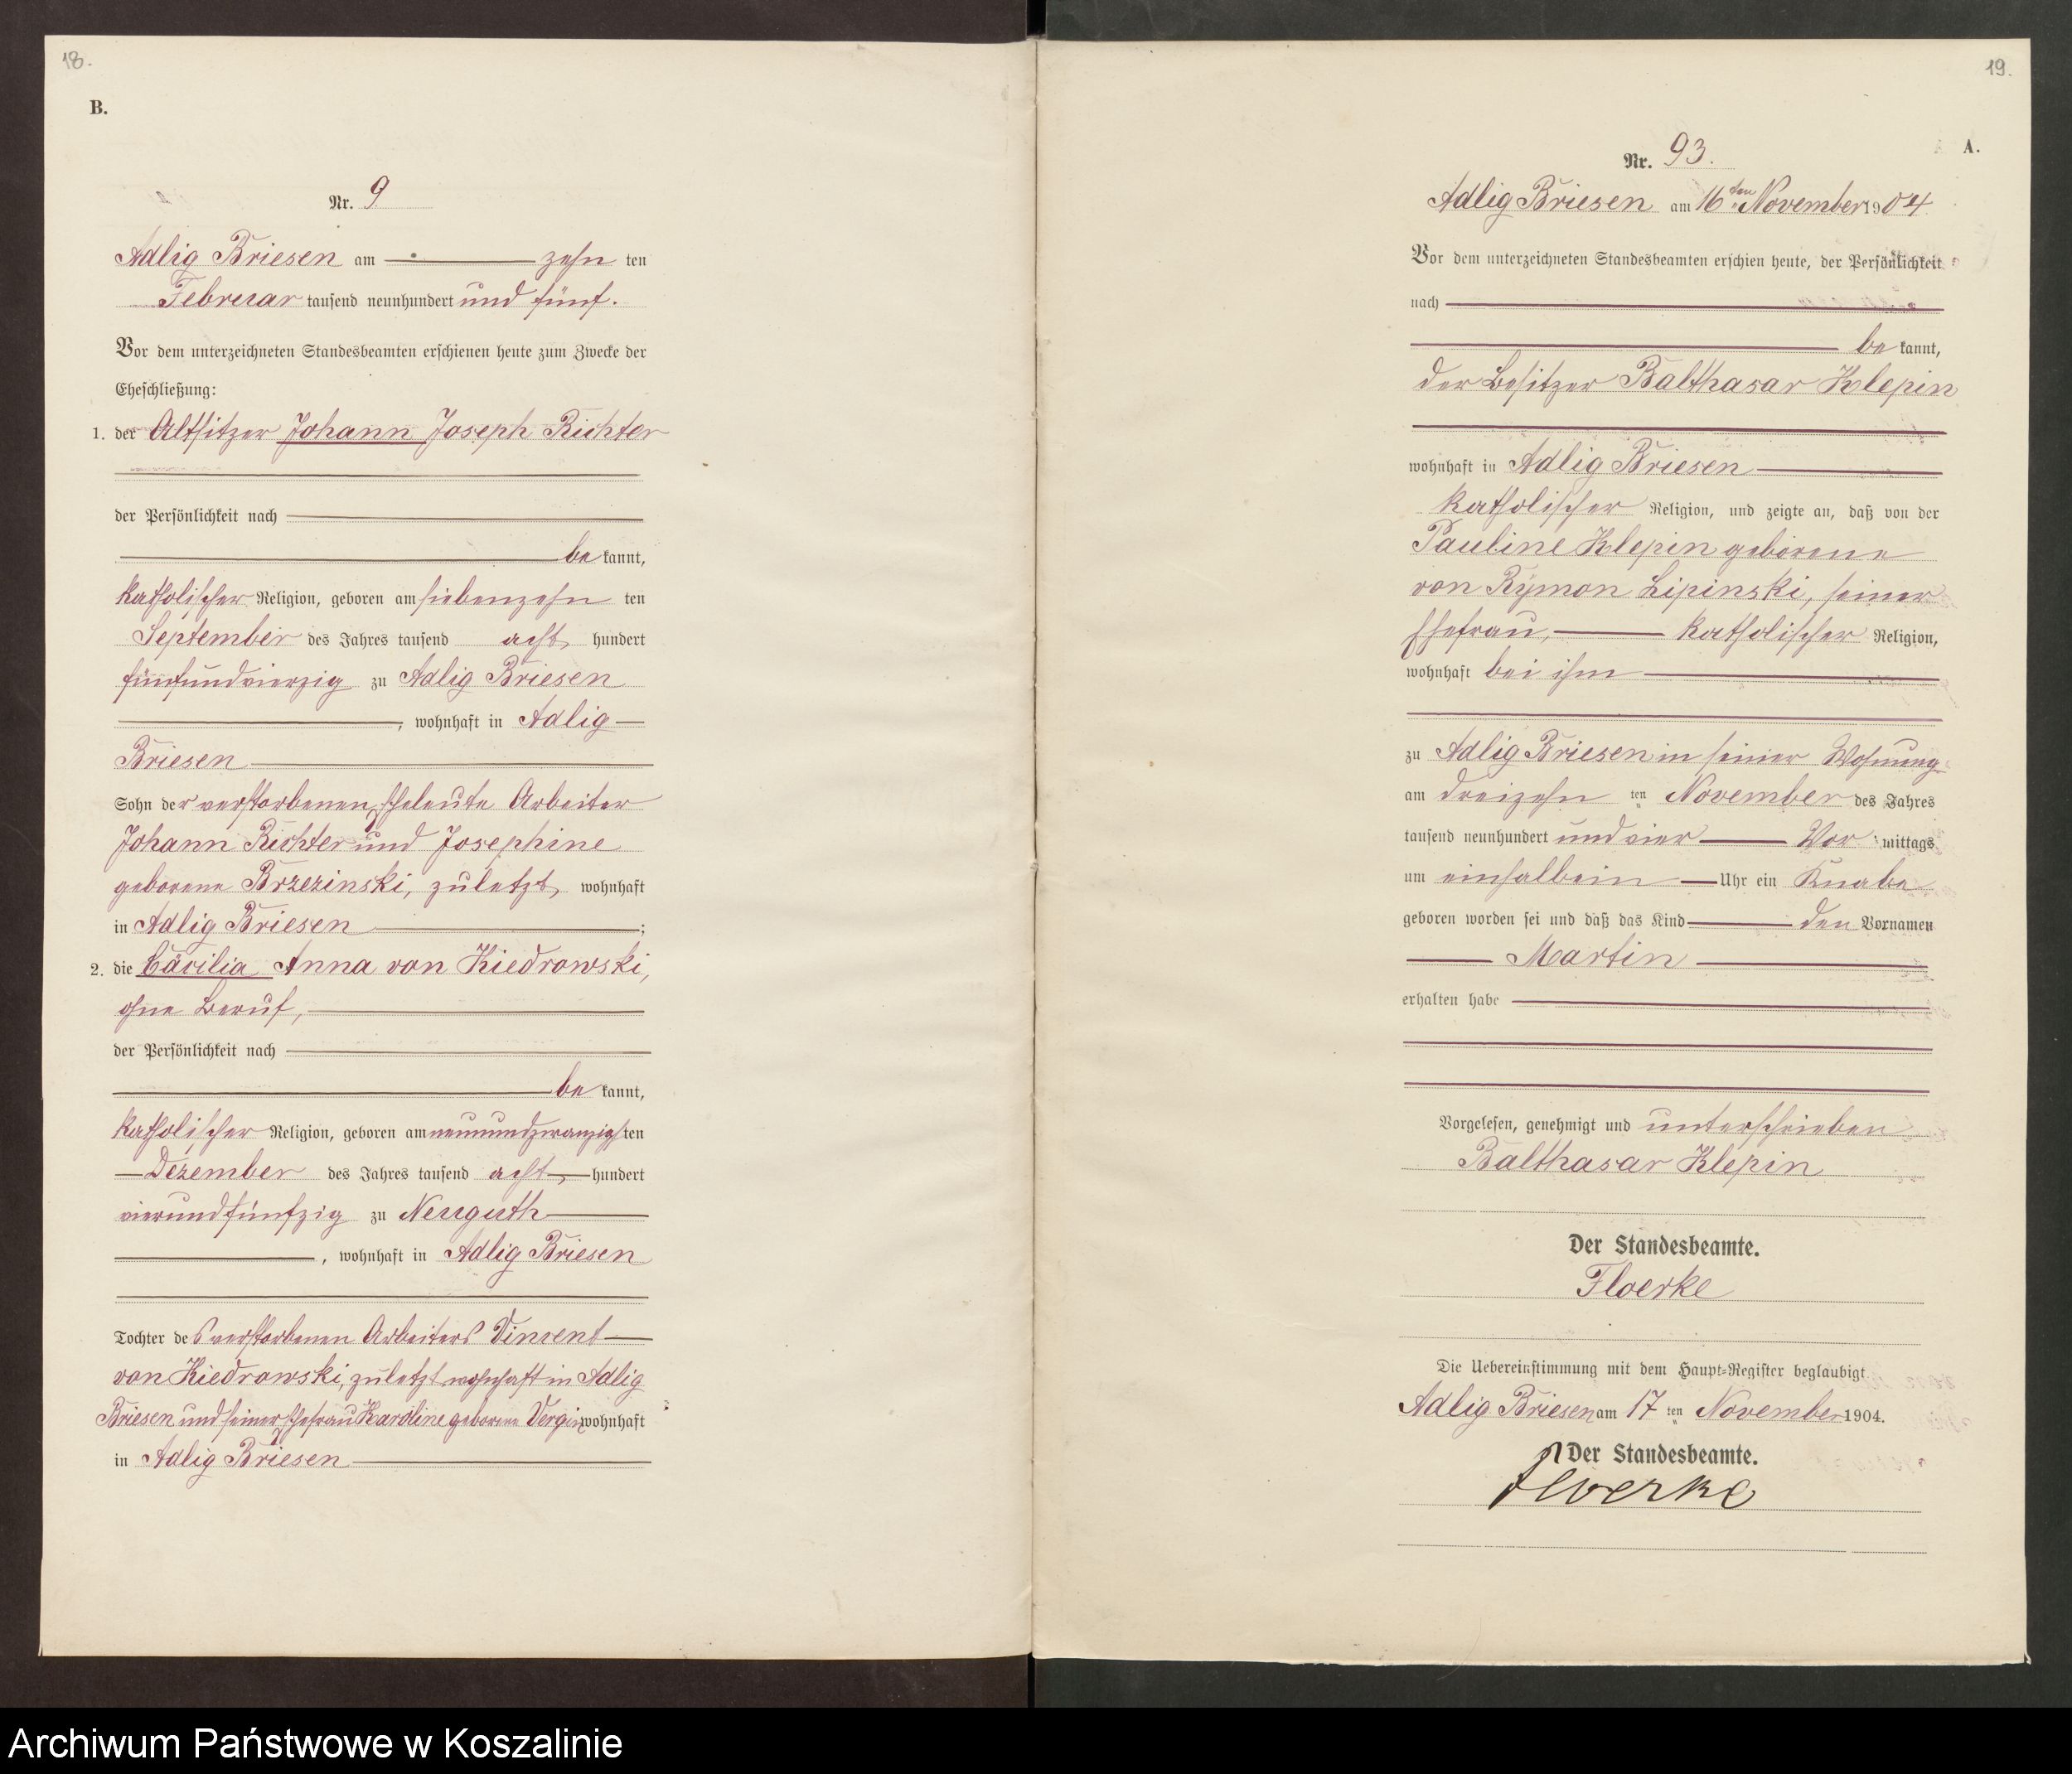 18.
B.
Nr. 9
Adlig Briesen am zehn ten
Februar tausend neunhundert und fünf.
Vor dem unterzeichneten Standesbeamten erschienen heute zum Zwecke der
Eheschließung:
1. der Altsitzer Johann Joseph Richter
der Persönlichkeit nach
be kannt,
katholischer Religion, geboren am siebenzehn ten
September des Jahres tausend acht hundert
fünfundvierzig zu Adlig Briesen
, wohnhaft in Adlig
Briesen
Sohn der verstorbenen Eheleute Arbeiter
Johann Richter und Josephine
geborene Brzezinski, zuletzt wohnhaft
in Adlig Briesen ;
2. die Cäcilia Anna von Kiedrowski,
ohne Beruf,
der Persönlichkeit nach
be kannt,
katholischer Religion, geboren am neunundzwanzigsten
Dezember des Jahres tausend acht hundert
vierundfünfzig zu Neuguth
, wohnhaft in Adlig Briesen
Tochter des verstorbenen Arbeiters Vincent
von Kiedrowski, zuletzt wohnhaft in Adlig
Briesen und seiner Ehefrau Karoline geborene Vergin wohnhaft
in Adlig Briesen
19.
A.
Nr. 93.
Adlig Briesen am 16ten November 1904
Vor dem unterzeichneten Standesbeamten erschien heute, der Persönlichkeit
nach
be kannt,
der Besitzer Balthasar Klepin
wohnhaft in Adlig Briesen
katholischer Religion, und zeigte an, daß von der
Pauline Klepin geborene
von Rymon Lipinski, seiner
Ehefrau, katholischer Religion,
wohnhaft bei ihm
zu Adlig Briesen in seiner Wohnung
am dreizehn ten November des Jahres
tausend neunhundert und vier Vor mittags
um einhalbein Uhr ein Knabe
geboren worden sei und daß das Kind den Vornamen
Martin
erhalten habe
Vorgelesen, genehmigt und unterschrieben
Balthasar Klepin
Der Standesbeamte.
Floerke
Die Uebereinstimmung mit dem Haupt-Register beglaubigt
Adlig Briesen am 17 ten November 1904.
Der Standesbeamte.
Floerke
Archiwum Państwowe w Koszalinie